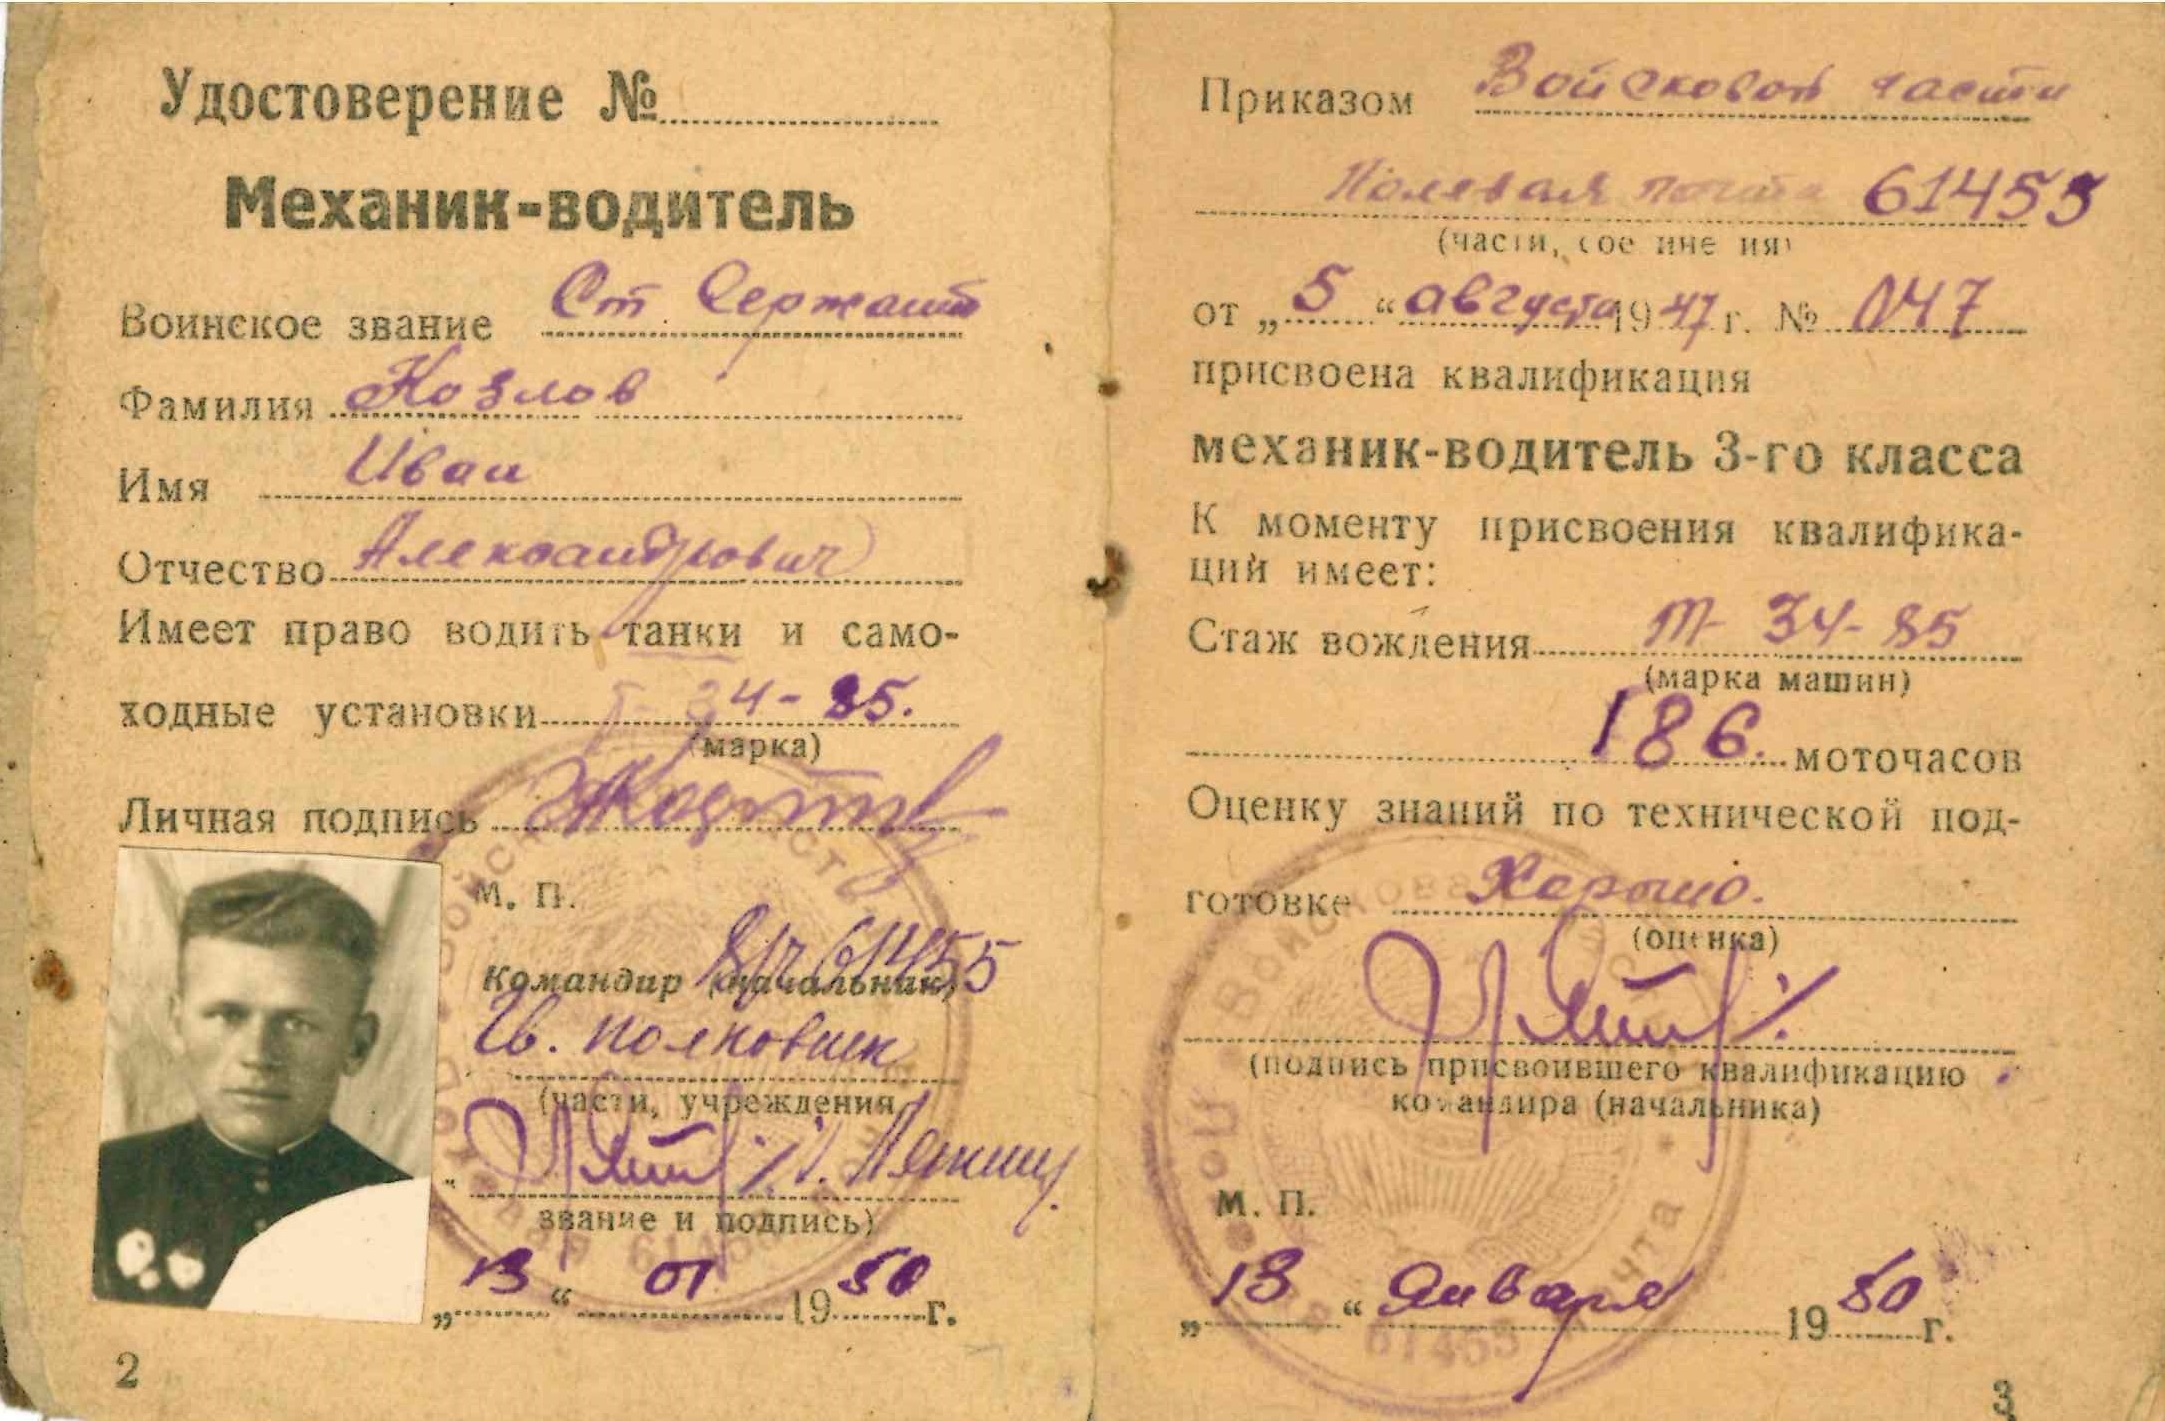 Удостоверение №
Механик-водитель
Воинское звание Ст Сержант
Фамилия Козлов
Имя Иван
Отчество Александрович
Имеет право водить танки и само-
ходные установки Т-34-85.
(марка)
Личная подпись
М. П.
в/ч 61455
Командир (начальник)
Гв. полковник
(части, учреждения,
звание и подпись)
„13“ 01 1950 г.
2
Приказом Войсковой части
Полевая почта 61455
(части, соединения)
от „5“ августа 1947 г. № 047
присвоена квалификация
механик-водитель 3-го класса
К моменту присвоения квалифика-
ций имеет:
Стаж вождения Т-34-85
(марка машин)
186. моточасов
Оценку знаний по технической под-
готовке Хорошо.
(оценка)
(подпись присвоившего квалификацию
командира (начальника)
М. П.
„13“ Января 1950 г.
3